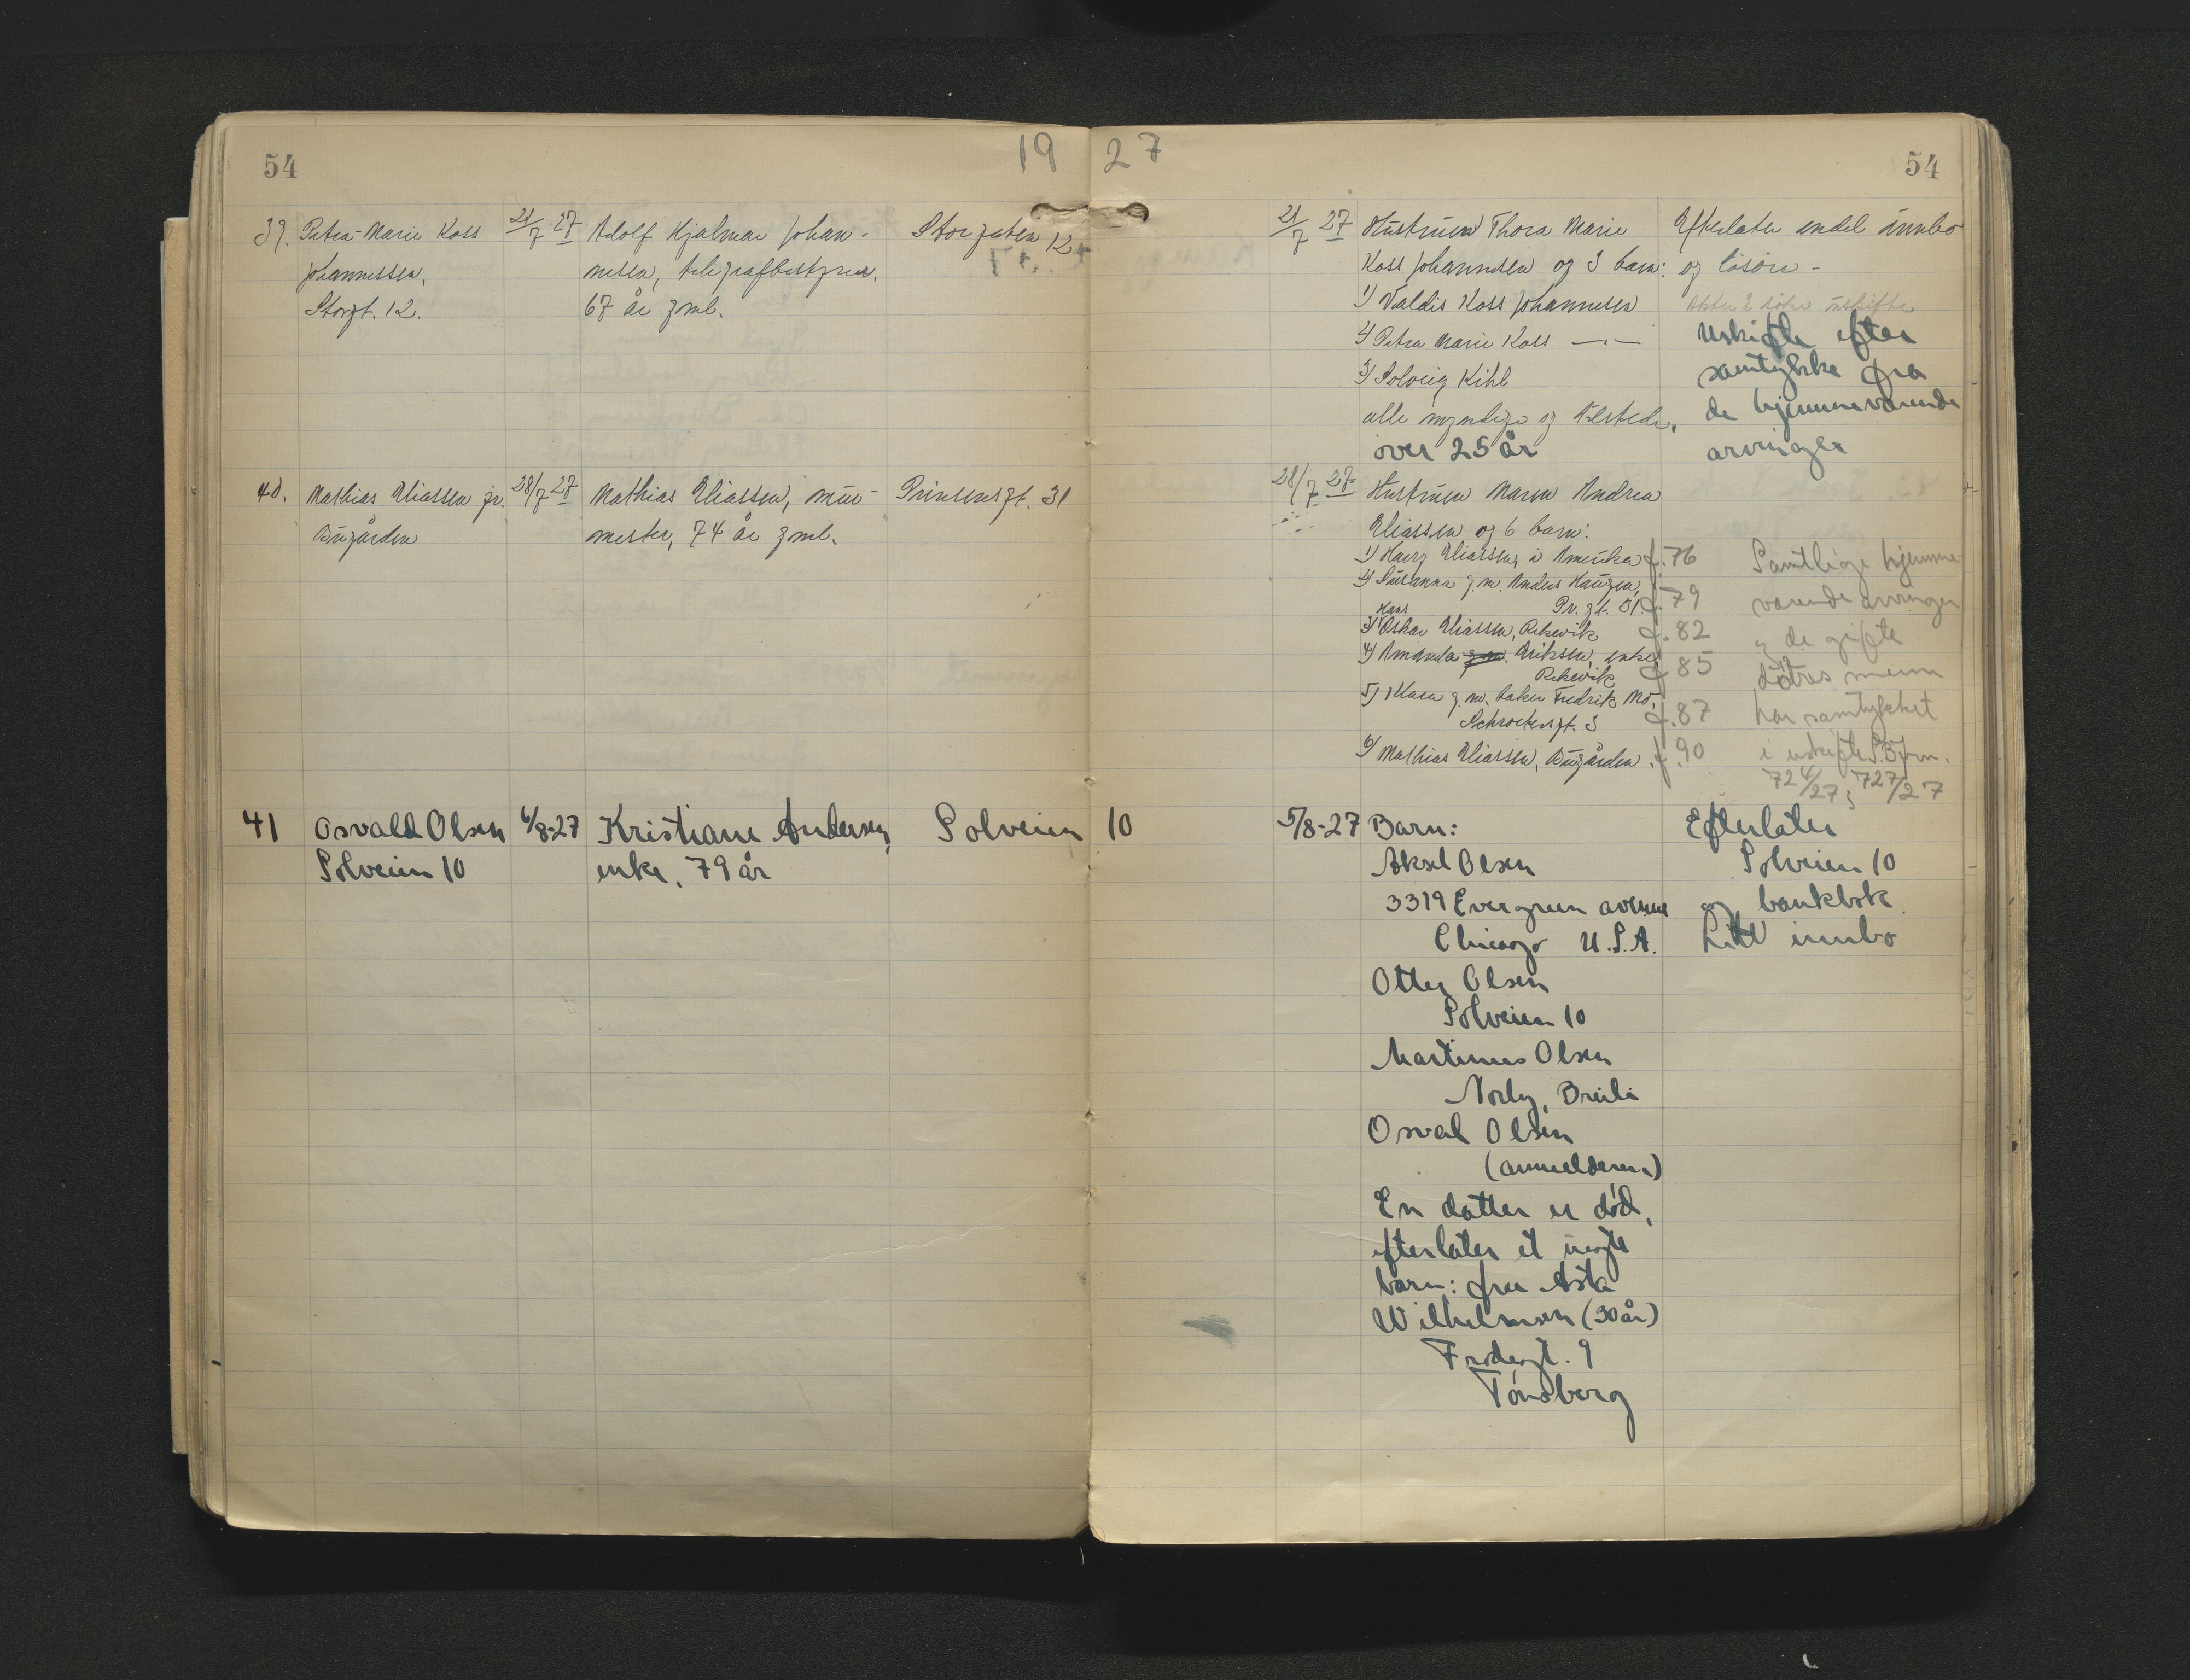 54
19 27
54
39. Petra Marie Koss
Johannessen,
Storgt. 12.
21/7 27
Adolf Hjalmar Johan-
nesen, telegrafbestyrer,
67 år gml.
Storgaten 12
21/7 27
Hustruen Thora Marie
Koss Johannesen og 3 barn:
1) Valdis Koss Johannesen
2) Petra Marie Koss —"—
3) Solveig Kihl
alle myndige og tilstede,
over 25 år
Efterlater endel innbo
og løsøre -
uskifte
Uskifte efter
samtykke fra
de hjemmeværende
arvinger
40. Mathias Eliassen jr.
Bugården
28/7 27
Mathias Eliassen, mur-
mester, 74 år gml.
Prinsensgt. 31
28/7 27
Hustruen Maren Andrea
Eliassen og 6 barn:
1) Harry Eliassen, i Amerika f. 76
2) Susanna g.m. Anders Haugen,
Pr. gt. 31. f. 79
Hans
3) Oskar Eliassen, Rekevik f. 82
4) Amanda g.m. Eriksen, enke,
Rekevik f. 85
5) Klara g.m. baker Fredrik Mo,
Schrøtersgt. 3 f. 87
6) Mathias Eliassen, Bugården. f. 90
Samtlige hjemme-
værende arvinger
og de gifte
døtres menn
har samtykket
i uskifte
724/27, 727/27
41 Osvald Olsen
Solveien 10
6/8-27
Kristiane Andersen,
enke, 79 år
Solveien 10
5/8-27
Barn:
Aksel Olsen
3319 Evergreen avenue
Chicago U.S.A.
Otter Olsen
Solveien 10
Martinus Olsen
Norby, Breili
Osval Olsen
(anmelderen)
En datter er død,
efterlater et
barn: fru Asta
Wilhelmsen (30 år)
Frodegt. 9
Tønsberg
Efterlater
Solveien 10
og bankbok
Litt innbo